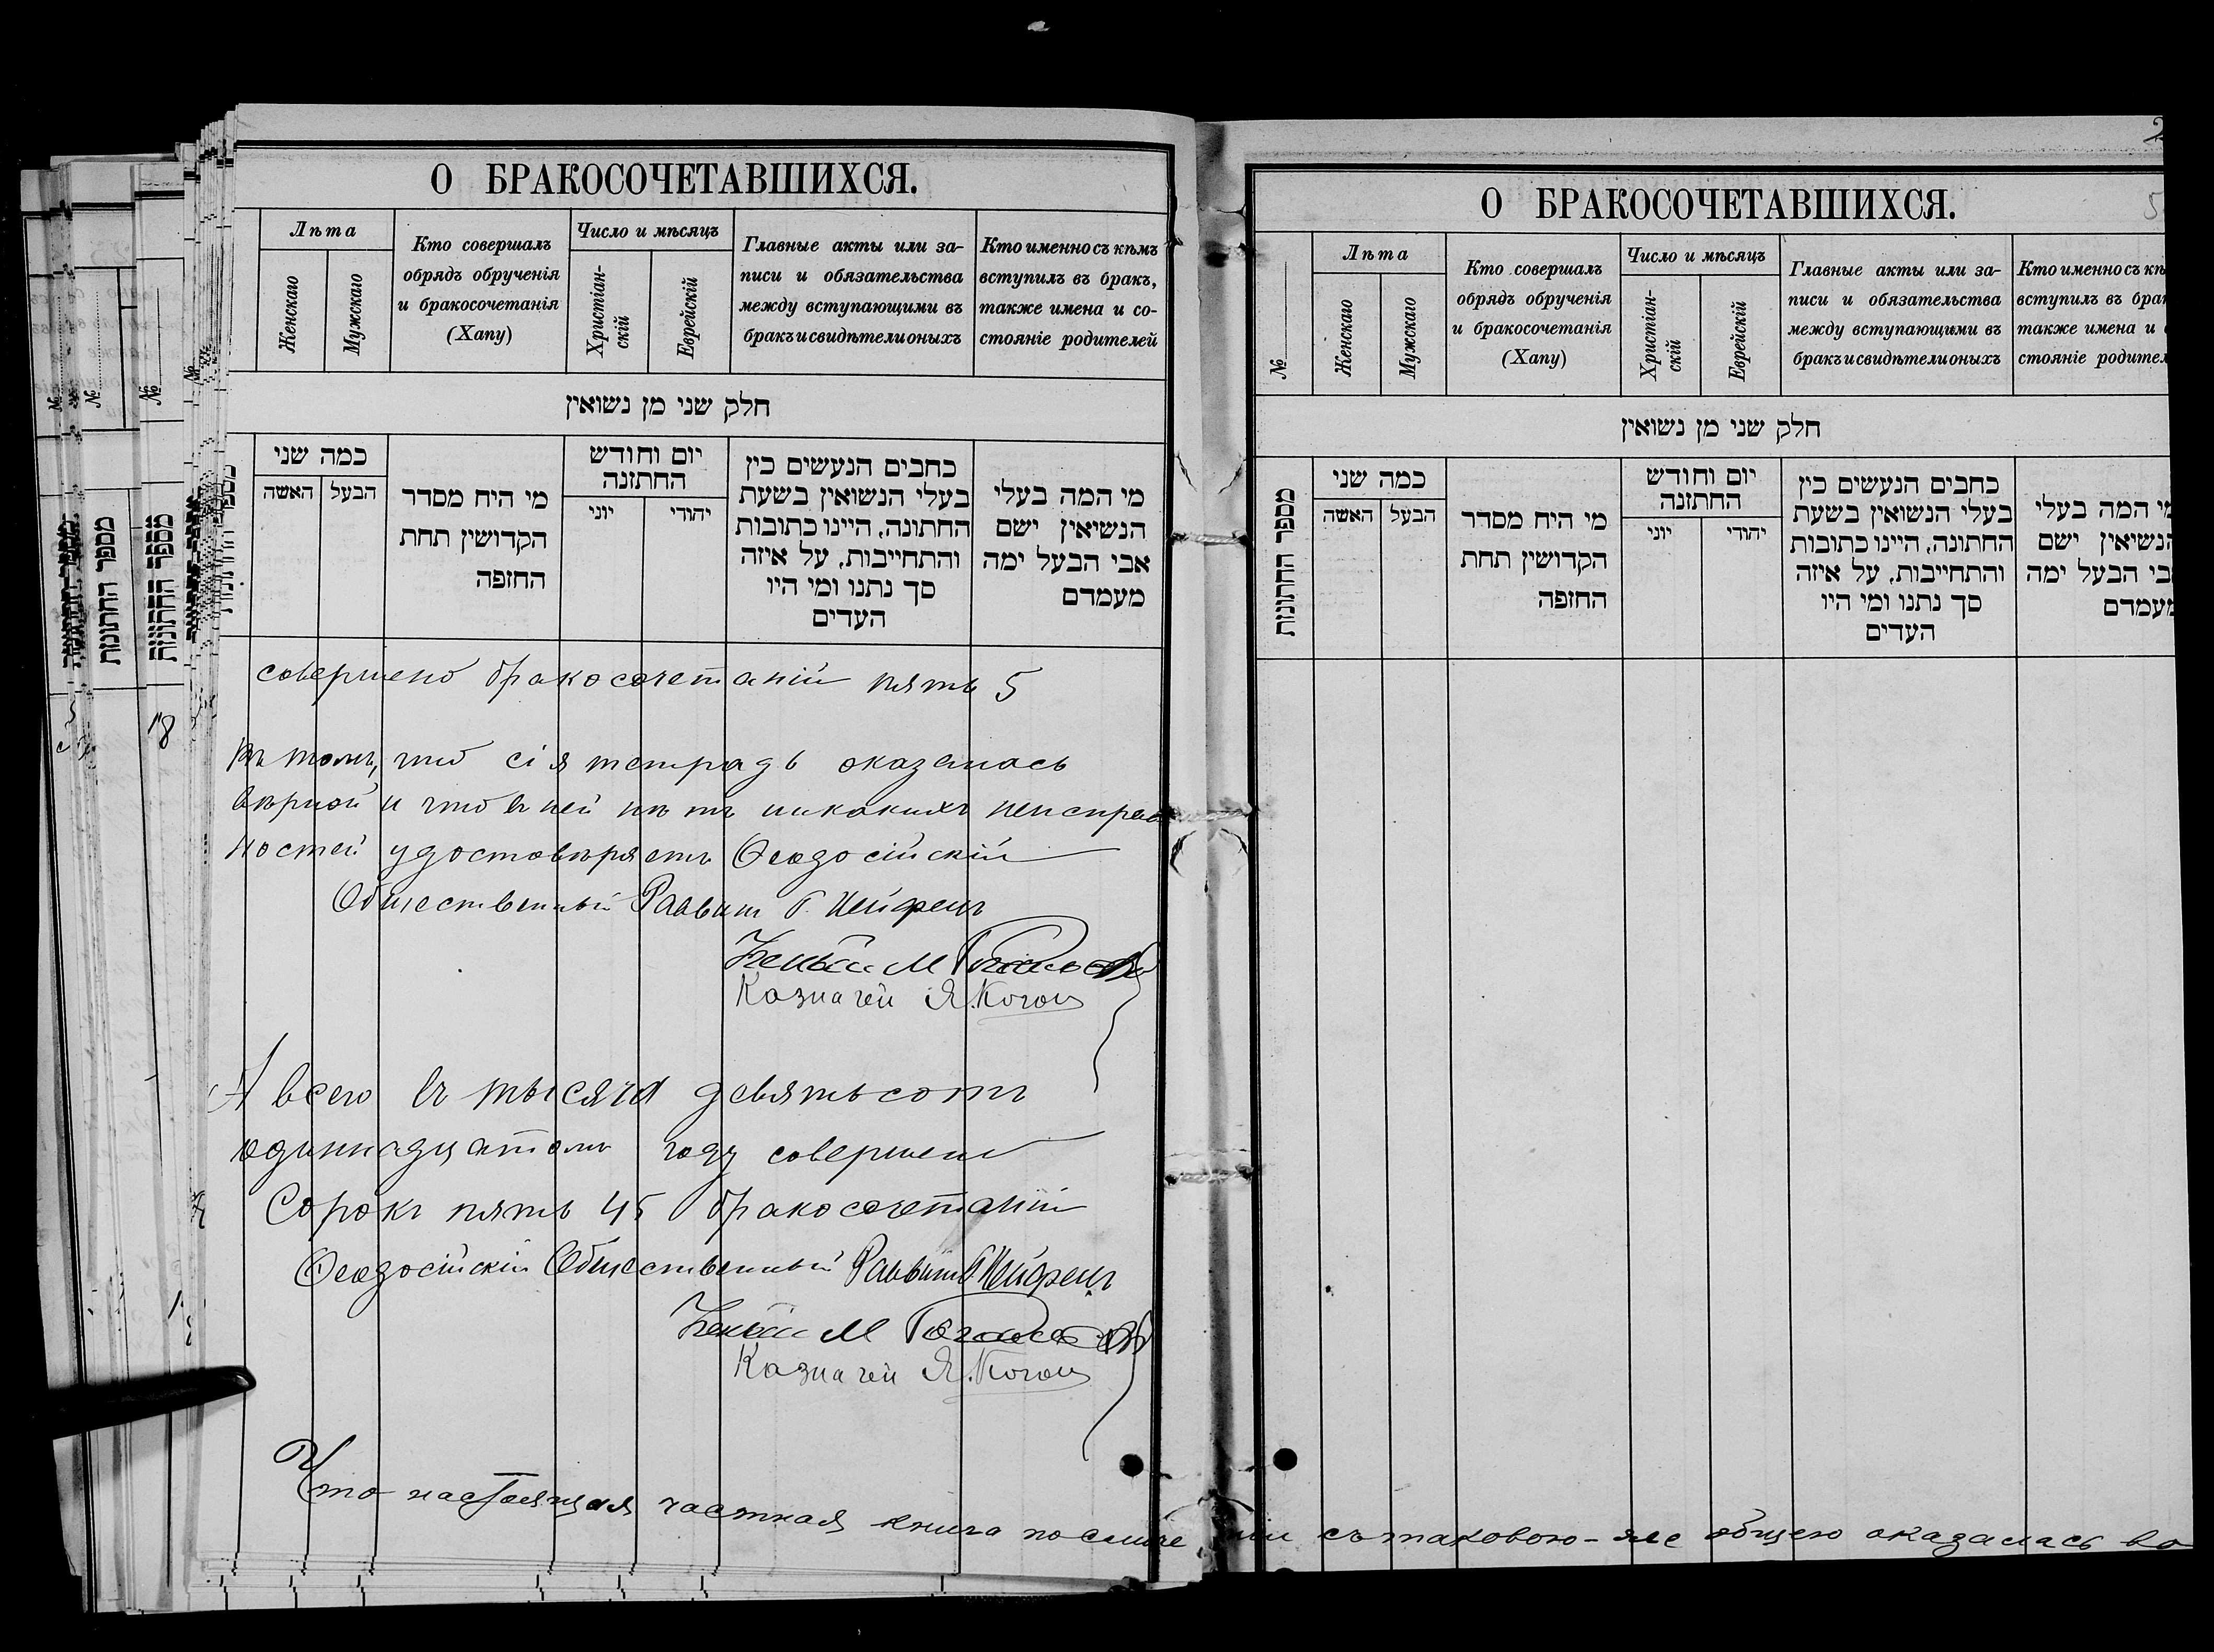 О БРАКОСОЧЕТАВШИХСЯ.
Лѣта
Женскаго
Мужскаго
Кто совершалъ
обрядъ обрученія
и бракосочетанія
(Хапу)
Число и мѣсяцъ
Христіан-
скій
Еврейскій
Главные акты или за-
писи и обязательства
между вступающими въ
бракъ и свидѣтели оныхъ
Кто именно съ кѣмъ
вступилъ въ бракъ,
также имена и со-
стояніе родителей
חלק שני מן נשואין
כמה שני
הבעל
האשה
מי היח מסדר
הקדושין תחת
החזפה
יום וחודש
החתזנה
יהודי
יוני
כחבים הנעשים כין
בעלי הנשואין בשעת
החתונה, היינו כתובות
והתחייבות, על איזה
סך נתנו ומי היו
העדים
מי המה בעלי
הנשיאין ישם
אבי הבעל ימה
מעמדם
совершено бракосочетаній пять 5
въ томъ, что сія тетрадь оказалась
вѣрной и что въ ней нѣтъ никакихъ неисправ
ностей удостовѣряетъ Ѳеодосійскій
Общественный Раввинъ
Казначей Я. Коган
А всего въ тысяча девятьсотъ
одиннадцатомъ году совершено
Сорокъ пять 45 бракосочетаній
Ѳеодосійскій Общественный Раввинъ
Казначей Я. Коган
Что настоящая частная книга по сличе нiи съ таковою-же общею оказалась во
О БРАКОСОЧЕТАВШИХСЯ.
№
Лѣта
Женскаго
Мужскаго
Кто совершалъ
обрядъ обрученія
и бракосочетанія
(Хапу)
Число и мѣсяцъ
Христіан-
скій
Еврейскій
Главные акты или за-
писи и обязательства
между вступающими въ
бракъ и свидѣтели оныхъ
Кто именно съ кѣ
вступилъ въ брак
также имена и
стояніе родител
חלק שני מן נשואין
מספר החתונות
כמה שני
הבעל
האשה
מי היח מסדר
הקדושין תחת
החזפה
יום וחודש
החתזנה
יהודי
יוני
כחבים הנעשים כין
בעלי הנשואין בשעת
החתונה, היינו כתובות
והתחייבות, על איזה
סך נתנו ומי היו
העדים
מי המה בעלי
הנשיאין ישם
בי הבעל ימה
מעמדם